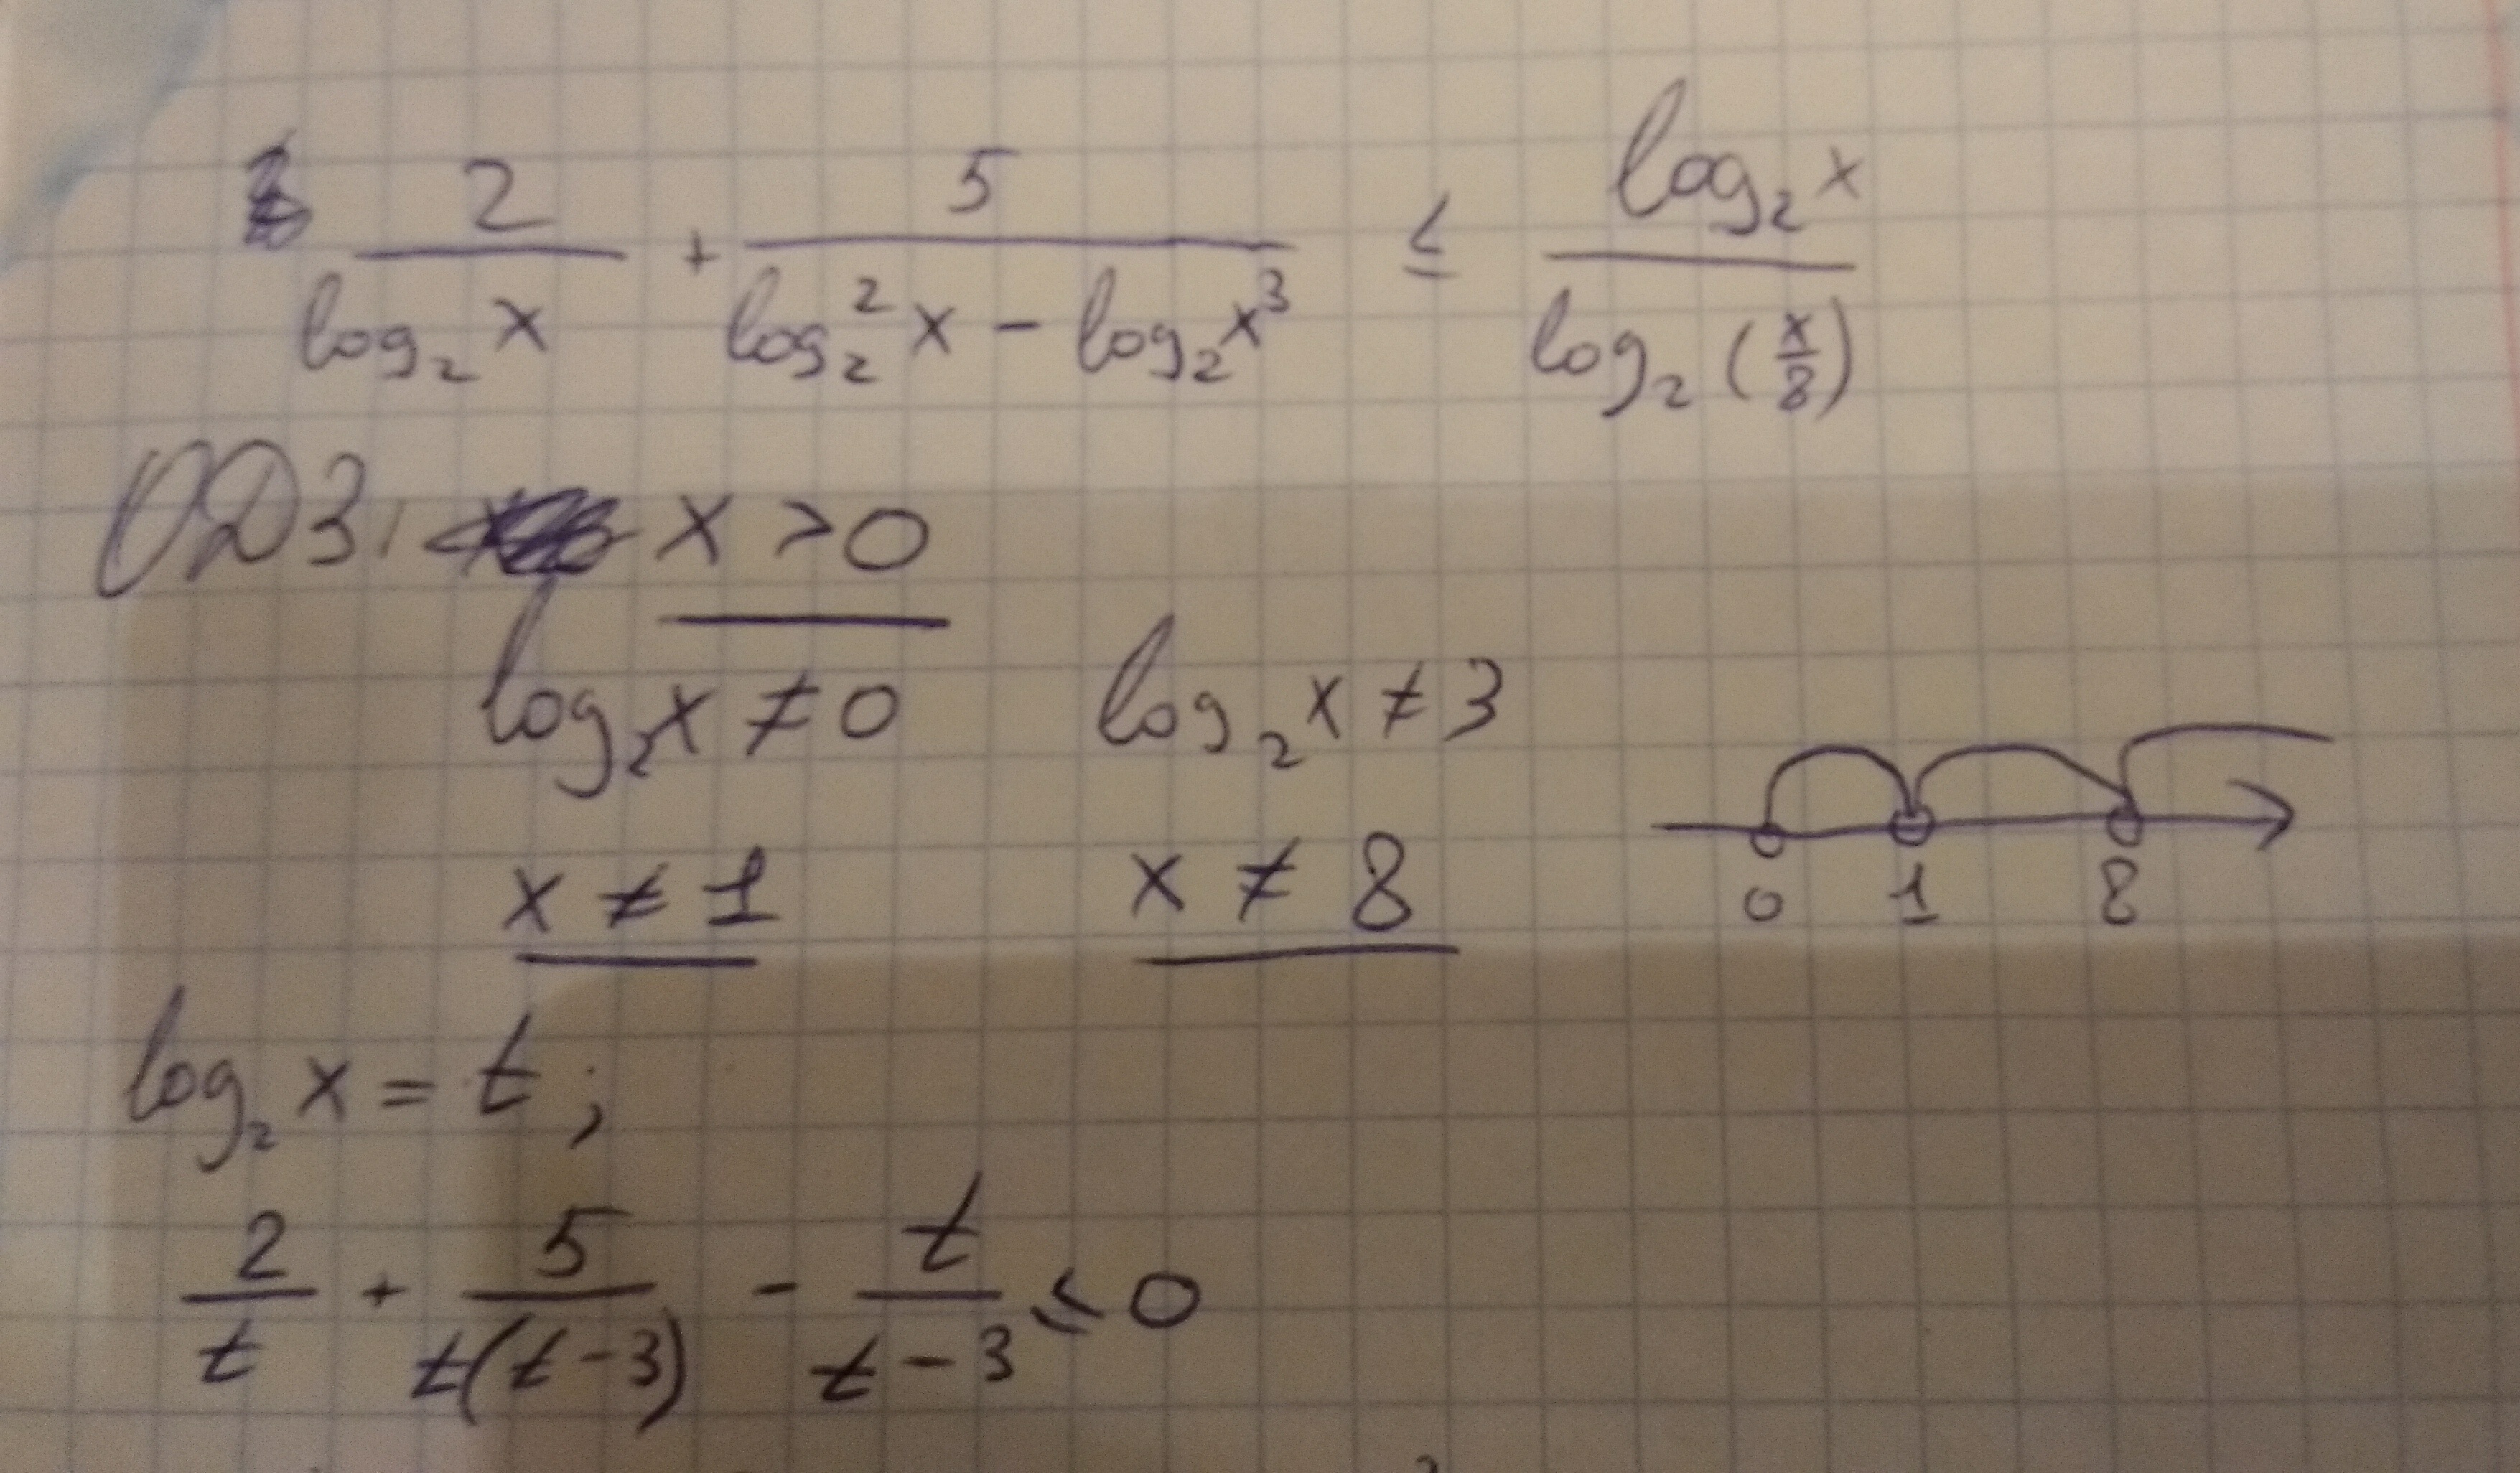 2/log₂ x + 5/(log₂² x - log₂ x³) ≤ log₂ x/log₂ (x/8)
ОДЗ: x > 0
log₂ x ≠ 0 log₂ x ≠ 3
x ≠ 1 x ≠ 8
0 1 8
log₂ x = t;
2/t + 5/(t(t-3)) - t/(t-3) ≤ 0